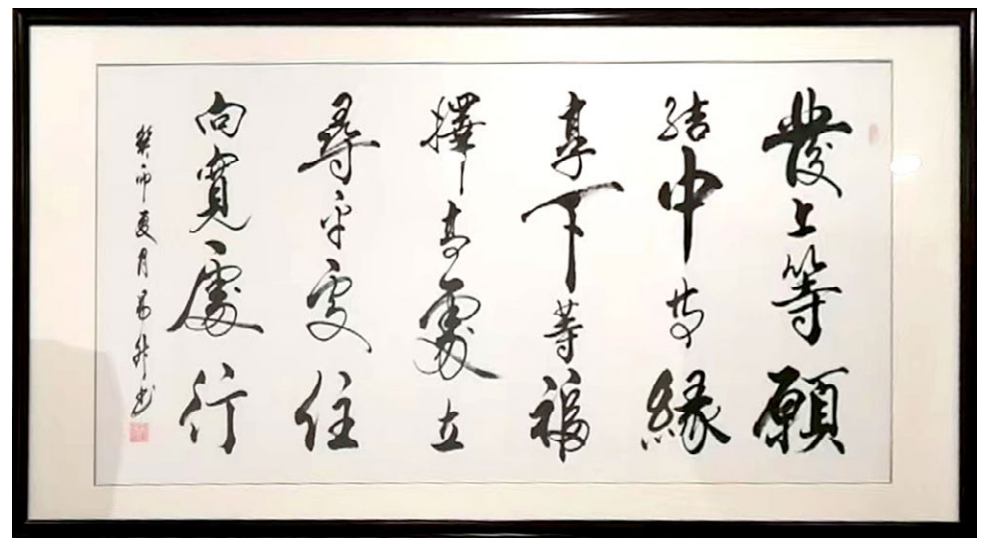 發上等願
結中等緣
享下等福
擇高處立
尋平處住
向寬處行
癸卯夏月易升书